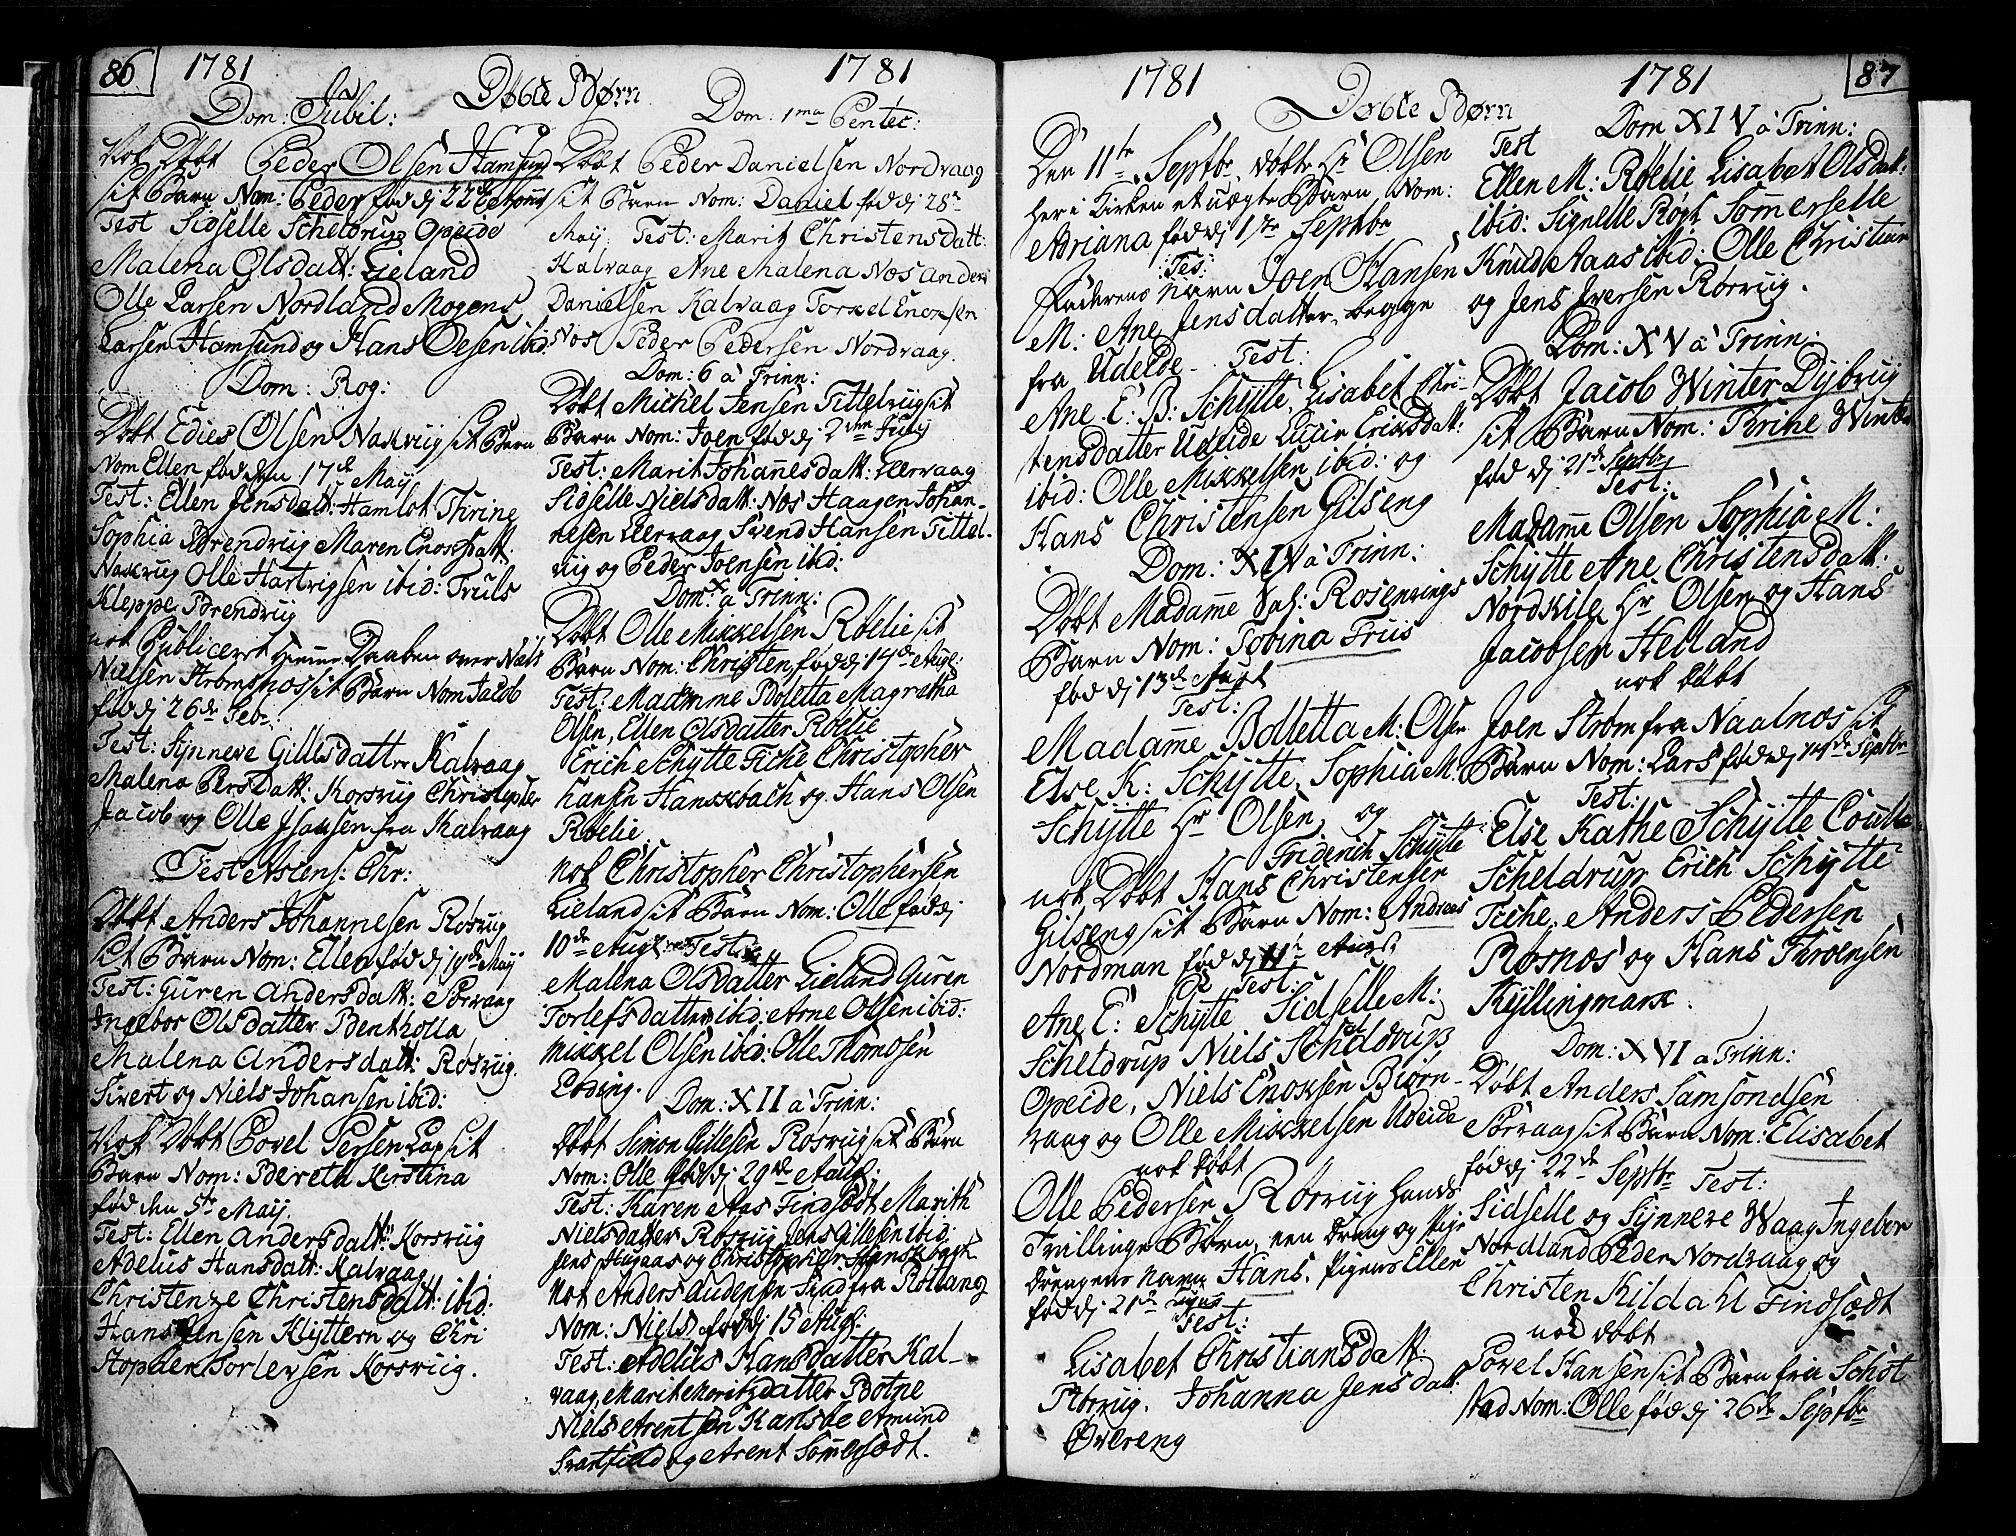 86 1781 Døbte Børn 1781
Dom: Jubil:
Nok Døbt Peder Olsen Hamsund
sit Barn Nom: Peder fød d 22de
Test Sidselle Scheldrup Opeide
Malena Olsdatt: Lieland
Olle Larsen Nordland Mogens
Larsen Hamsund og Hans Oesen ibid:
Dom: Rog:
Døbt Edies Olsen Nakvug sit Barn
Nom Ellen fød den 17de May
Test: Ellen Jensdatt: Hamlot Thrine
Sophia Brendvug Maren Enochsdatt:
Nakvug Olle Hartvigsen ibid: Truls
Kleppe Brendvug
nok Publiceret hiemme Daaben over Niels
Nielsen Strømsnos sit Barn Nom Jacob
fød dj 26de Febr:
Test: Synneve Gillesdatter Kalvaag
Malena Persdatt: Korsvug Christopher
Jacob og Olle Jsaksen fra Kalvaag
Fest Ascens: Chr:
Døbt Anders Johannesen Røsvug
sit Barn Nom: Ellen fød dj 19de May
Test: Guren Andersdatt: Sørvaag
Ingebor Olsdatter Bentholla
Malena Andersdatt: Røsvug.
Sivert og Niels Johansen ibid:
Nok Døbt Povel Persen Lap sit
Barn Nom: Bereth Kirstina
fød den 5te May.
Test: Ellen Andersdatt: Korsvug
Adelus Hansdatt: Kalvaag
Christenze Christensdatt: ibid:
Hans Jensen Klyttern og Chri
stopher Torlevsen Korsvug.
Dom: 1ma Pentec:
Døbt Peder Danielsen Nordvaag
sit Barn Nom: Daniel fød dj 28de
Maij. Test: Marit Christensdatt:
Kalvaag Ane Malena Nos Anders
Danielsen Kalvaag Torkel Enoksen
Nos Peder Pedersen Nordvaag.
Dom: 6 à Trinn:
Døbt Michel Jensen Tittelvug sit
Barn Nom: Joen fød dj 2den July
Test: Marit Johannesdatt: Leervaag
Sidselle Nielsdatt: Nos Haagen Johan-
nesen Leervaag Svend Hansen Tittel-
vug og Peder Joensen ibid:
Dom: X a Trinn:
Døbt Olle Mikkelsen Røelie sit
Barn Nom: Christen, fød dj 14de Aug:
Test: Madamme Boletta Magretha
Olsen, Ellen Olsdatter Røelie
Erich Schytte Fiche Christopher
Hansen Hanskbach og Hans Olsen
Røelie
nok Christopher Christophersen
Lieland sit Barn Nom: Olle fød dj
10de Aug: Test:
Malena Olsdatter Lieland Guren
Torlefsdatter ibid: Arne Olsen ibid:
Mikkel Olsen ibid: Olle Thomæsen
Ebbing.
Dom: XII a Trinn:
Døbt Simon Gillesen Røsvug sit Barn
Nom: Olle fød dj 29de Aug:
Test: Karen Aas Findsødt Marith
Nielsdatter Røsvug Jens Gillesen ibid:
Jens Haugaas og Christopher Hanskbach
nok Anders Andersen
Nom: Niels fød dj 15 Aug:
Test: Adelus Hansdatter Kal-
vaag, Marit Moritzdatter Botne
Niels Arentsen Karlsbe Amund
Svartfield og Arent Somersædt.
1781 Døbte Børn 1781 87
Den 11te Septbr døbte Hr Olsen
her i Kirken et uægte Barn Nom:
Adriana fød dj 1te Septbr
Tes:
Faderens Navn Joen Hansen
M: Ane Jensdatter begge
fra Udeide. Test:
Ane E: B: Schytte, Lisabet Chri-
stensdatter Udeide Lucie Ericksdatt:
ibid: Olle Mikkelsen ibid: og
Hans Christensen Gilseng
Dom: XIV a Trinn:
Døbt Madamme Sal: Rosenvings
Barn Nom: Tobina Friis
fød dj 13de Aust
Test:
Madamme Bolletta M: Olsen
Else K: Schytte, Sophia M:
Schytte Hr Olsen og
Friderich Schytte
nok Døbt Hans Christensen
Gilseng sit Barn Nom: Andreas
Nordman fød dj 11te Augst
Test:
Ane E: Schytte Sidselle M:
Scheldrup Niels Scheldrup
Opeide, Niels Enoksen Biørn-
vaag og Olle Mikkelsen Udeide
nok døbt
Olle Pedersen Rørvug hands
Tvillinge Børn, een Dreng og Pige
Drengens Navn Hans, Pigens Ellen
fød dj 21de
Test:
Lisabet Christiansdatt:
Rørvug. Johanna Jensdatt.
Øvereng
Dom XIV a Trinn:
Test
Ellen M: Røelie Lisabet Olsdatt:
ibid: Signelle Røgh Somerselle
Knud Aaas ibid: Olle Christian
og Jens Iversen Rørvug.
Dom: XV a Trinn:
Døbt Jacob Winter Dybvug
sit Barn Nom: Trine Winter
fød dj 21de Septbr
Test:
Madamme Olsen Sophia M:
Schytte Ane Christensdatt:
Nordkile, Hr Olsen og Hans
Jacobsen Helland
nok døbt
Joen Strøm fra Naalnos sit
Barn Nom: Lars fød dj 14de Septbr
Test:
Else Kathe Schytte
Scheldrup Erich Schytte
Fiche, Anders Pedersen
Røsnos og Hans Throensen
Kyllingmark.
Dom: XVI a Trinn:
Døbt Anders Samsondsen
Sørvaag sit Barn Nom: Elisabet
fød dj 22de Septbr Test:
Sidselle og Synneve Waag Ingebor
Nordland Peder Nordvaag og
Christen Kildahl Findsædt
nok døbt
Povel Hansen sit Barn fra Schot
stad Nom: Olle fød dj 26de Septbr